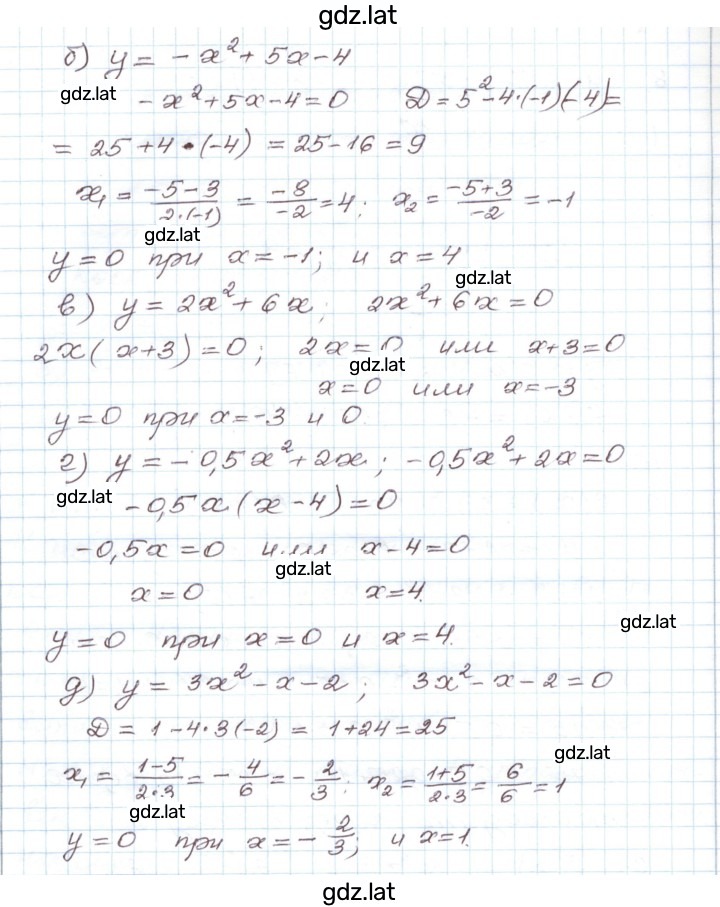 gdz.lat
б) y = -x² + 5x - 4
gdz.lat -x² + 5x - 4 = 0 D = 5² - 4·(-1)(-4) =
= 25 + 4 · (-4) = 25 - 16 = 9
x₁ = (-5 - 3)/(2·(-1)) = (-8)/(-2) = 4; x₂ = (-5+3)/(-2) = -1
gdz.lat
y = 0 при x = -1; и x = 4
gdz.lat
в) y = 2x² + 6x; 2x² + 6x = 0
2x(x+3) = 0; 2x = 0 или x+3 = 0
gdz.lat
x = 0 или x = -3
y = 0 при x = -3 и 0
г) y = -0,5x² + 2x; -0,5x² + 2x = 0
gdz.lat -0,5x(x - 4) = 0
-0,5x = 0 или x - 4 = 0
gdz.lat
x = 0 x = 4.
gdz.lat
y = 0 при x = 0 и x = 4.
д) y = 3x² - x - 2; 3x² - x - 2 = 0
D = 1 - 4·3(-2) = 1 + 24 = 25
gdz.lat
x₁ = (1-5)/(2·3) = -4/6 = -2/3; x₂ = (1+5)/(2·3) = 6/6 = 1
gdz.lat
y = 0 при x = -2/3; и x = 1.
gdz.lat